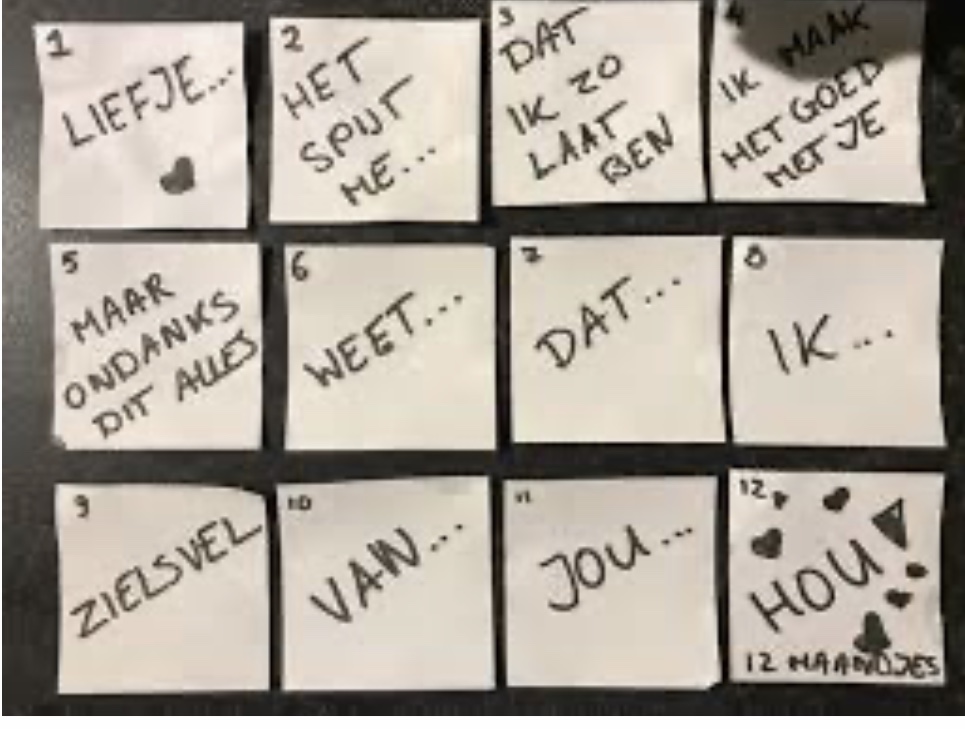 1
LIEFJE...
2
HET
SPIJT
ME...
3
DAT
IK ZO
LAAT
BEN
4
IK MAAK
HET GOED
MET JE
5
MAAR
ONDANKS
DIT ALLES
6
WEET...
7
DAT...
8
IK...
9
ZIELSVEL
10
VAN...
11
JOU...
12
HOU!
12 MAANDJES